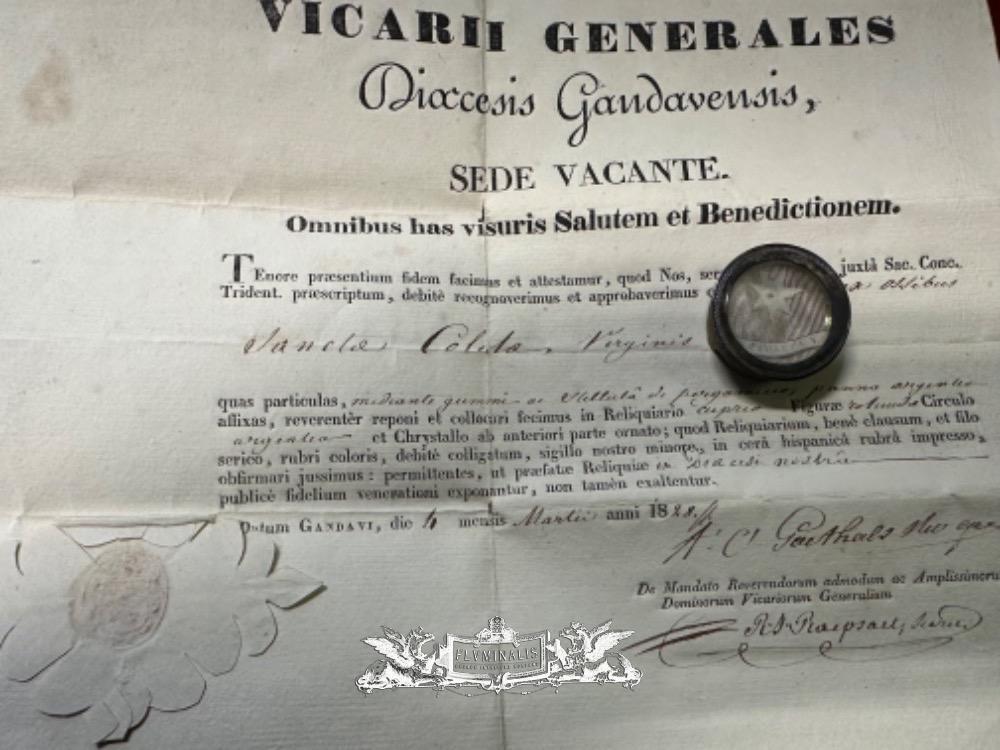 VICARII GENERALES
Diœcesis Gandavensis,
SEDE VACANTE.
Omnibus has visuris Salutem et Benedictionem.
TEnore præsentium fidem facimus et attestamur, quod Nos, juxtà Sac. Conc.
Trident. præscriptum, debitè recognoverimus et approbaverimus ossibus
Sanctæ Coletæ, Virginis
quas particulas, mediante gummi ac Stellulâ di pergameno, panno argenteo
affixas, reverentèr reponi et collocari fecimus in Reliquiario cupreo Figuræ rotundæ Circulo
argenteo et Chrystallo ab anteriori parte ornato; quod Reliquiarium, benè clausum, et filo
serico, rubri coloris, debitè colligatum, sigillo nostro minore, in cerâ hispanicâ rubrâ impresso,
obfirmari jussimus: permittentes, ut præfatæ Reliquiæ in Diœcesi nostrâ
publicè fidelium venerationi exponantur, non tamèn exaltentur.
Datum GANDAVI, die 4 mensis Martii anni 1828.
Goethals
De Mandato Reverendorum admodum ac Amplissimorum
Dominorum Vicariorum Generalium
FLVMINALIS